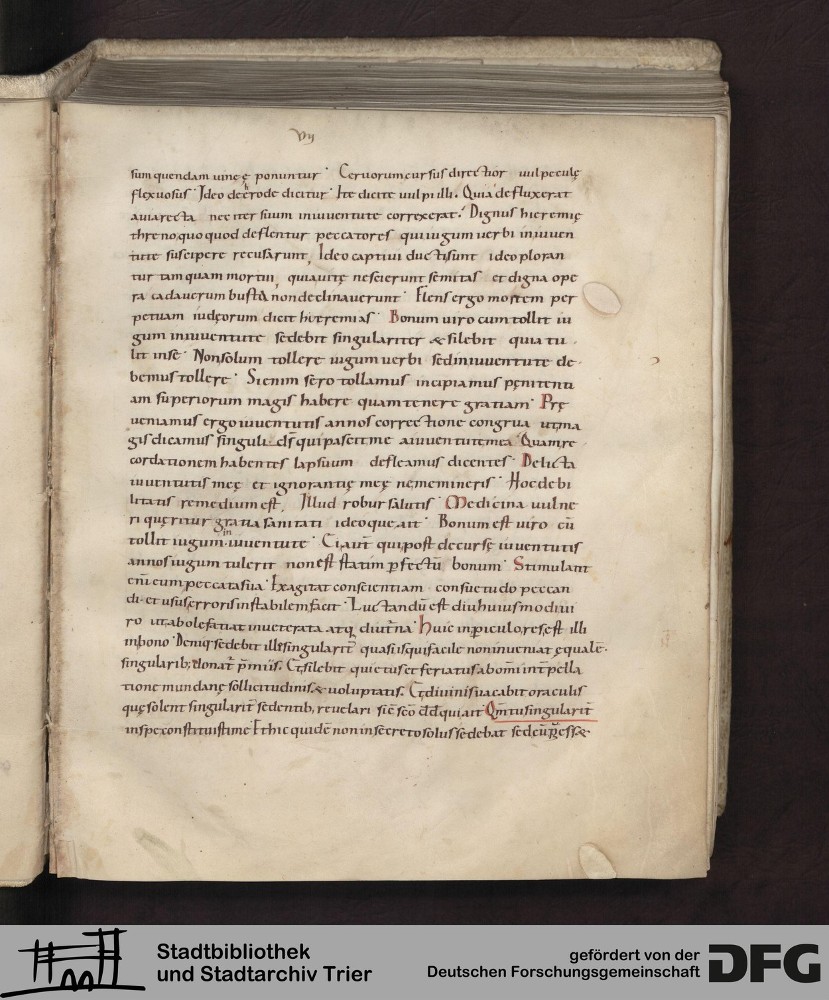 vij
sum quendam uineę ponuntur · Ceruorum cursus directior uulpeculę
flexuosus · Ideo de erode dicitur · Ite dicite uulpi illi. Quia defluxerat
a uia recta nec iter suum in iuuentute correxerat. Dignus hieremię
threno quo quod deflentur peccatores qui iugum uerbi in iuuen
tute suscipere recusarunt, Ideo captiui ducti sunt ideo ploran
tur tamquam mortui, quia uitę nescierunt semitas et digna ope
ra cadauerum busta non declinauerunt · Flens ergo mortem per
petuam iudęorum dicit hieremias · Bonum uiro cum tollit iu
gum in iuuentute sedebit singulariter & silebit quia tu
lit in se · Non solum tollere iugum uerbi sed in iuuentute de
bemus tollere · Si enim sero tollamus incipiamus pęnitenti
am superiorum magis habere quam tenere gratiam · Prę
ueniamus ergo iuuentutis annos correctione congrua ut ma
gis dicamus singuli. ds̄ qui pascit me a iuuentute mea · Quam re
cordationem habentes lapsuum defleamus dicentes · Delicta
iuuentutis meę et ignorantię meę ne memineris · Hoc debi
litatis remedium est. Illud robur salutis · Medicina uulne
ri quęritur gratia sanitati ideoque ait · Bonum est uiro cū
tollit iugum in iuuentute · Cęterū qui post decursę iuuentutis
annos iugum tulerit non est statim ꝑfectū bonum · Stimulant
enī eum peccata sua · Exagitat conscientiam consuetudo peccan
di · et usus erroris instabilem facit · Luctandū est diu huiusmodi ui
ro ut abolefatiat inueterata atq; diutna · Huic in periculo res est illi
in bono · Deniq; sedebit ille singularit̄ quasi is qui facile non inueniat ęqualē ·
singularib; donat̄ p̄miis. Et silebit quietus et feriatus ab omī intꝑella
tione mundanę sollicitudinis & voluptatis. Et diuinis uacabit oraculis
quę solent singularit̄ sedentib; reuelari sic̄ sc̄o dd̄ qui ait Qm̄ tu singularit̄
in spe constituisti me · Et hic quidē non in secreto solus sedebat sed cū p̄ess&
Stadtbibliothek
und Stadtarchiv Trier
gefördert von der
Deutschen Forschungsgemeinschaft
DFG